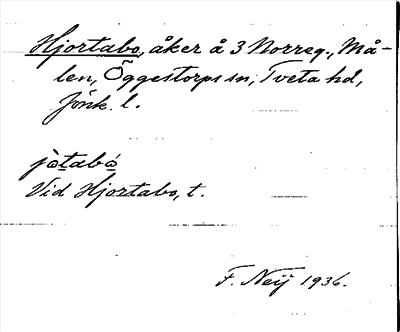 Hjortabo, åker å 3 Norreg., Må-
len, Öggestorps sn, Tveta hd,
Jönk. l.
jòtabó
Vid Hjortabo, t.
F. Neij 1936.